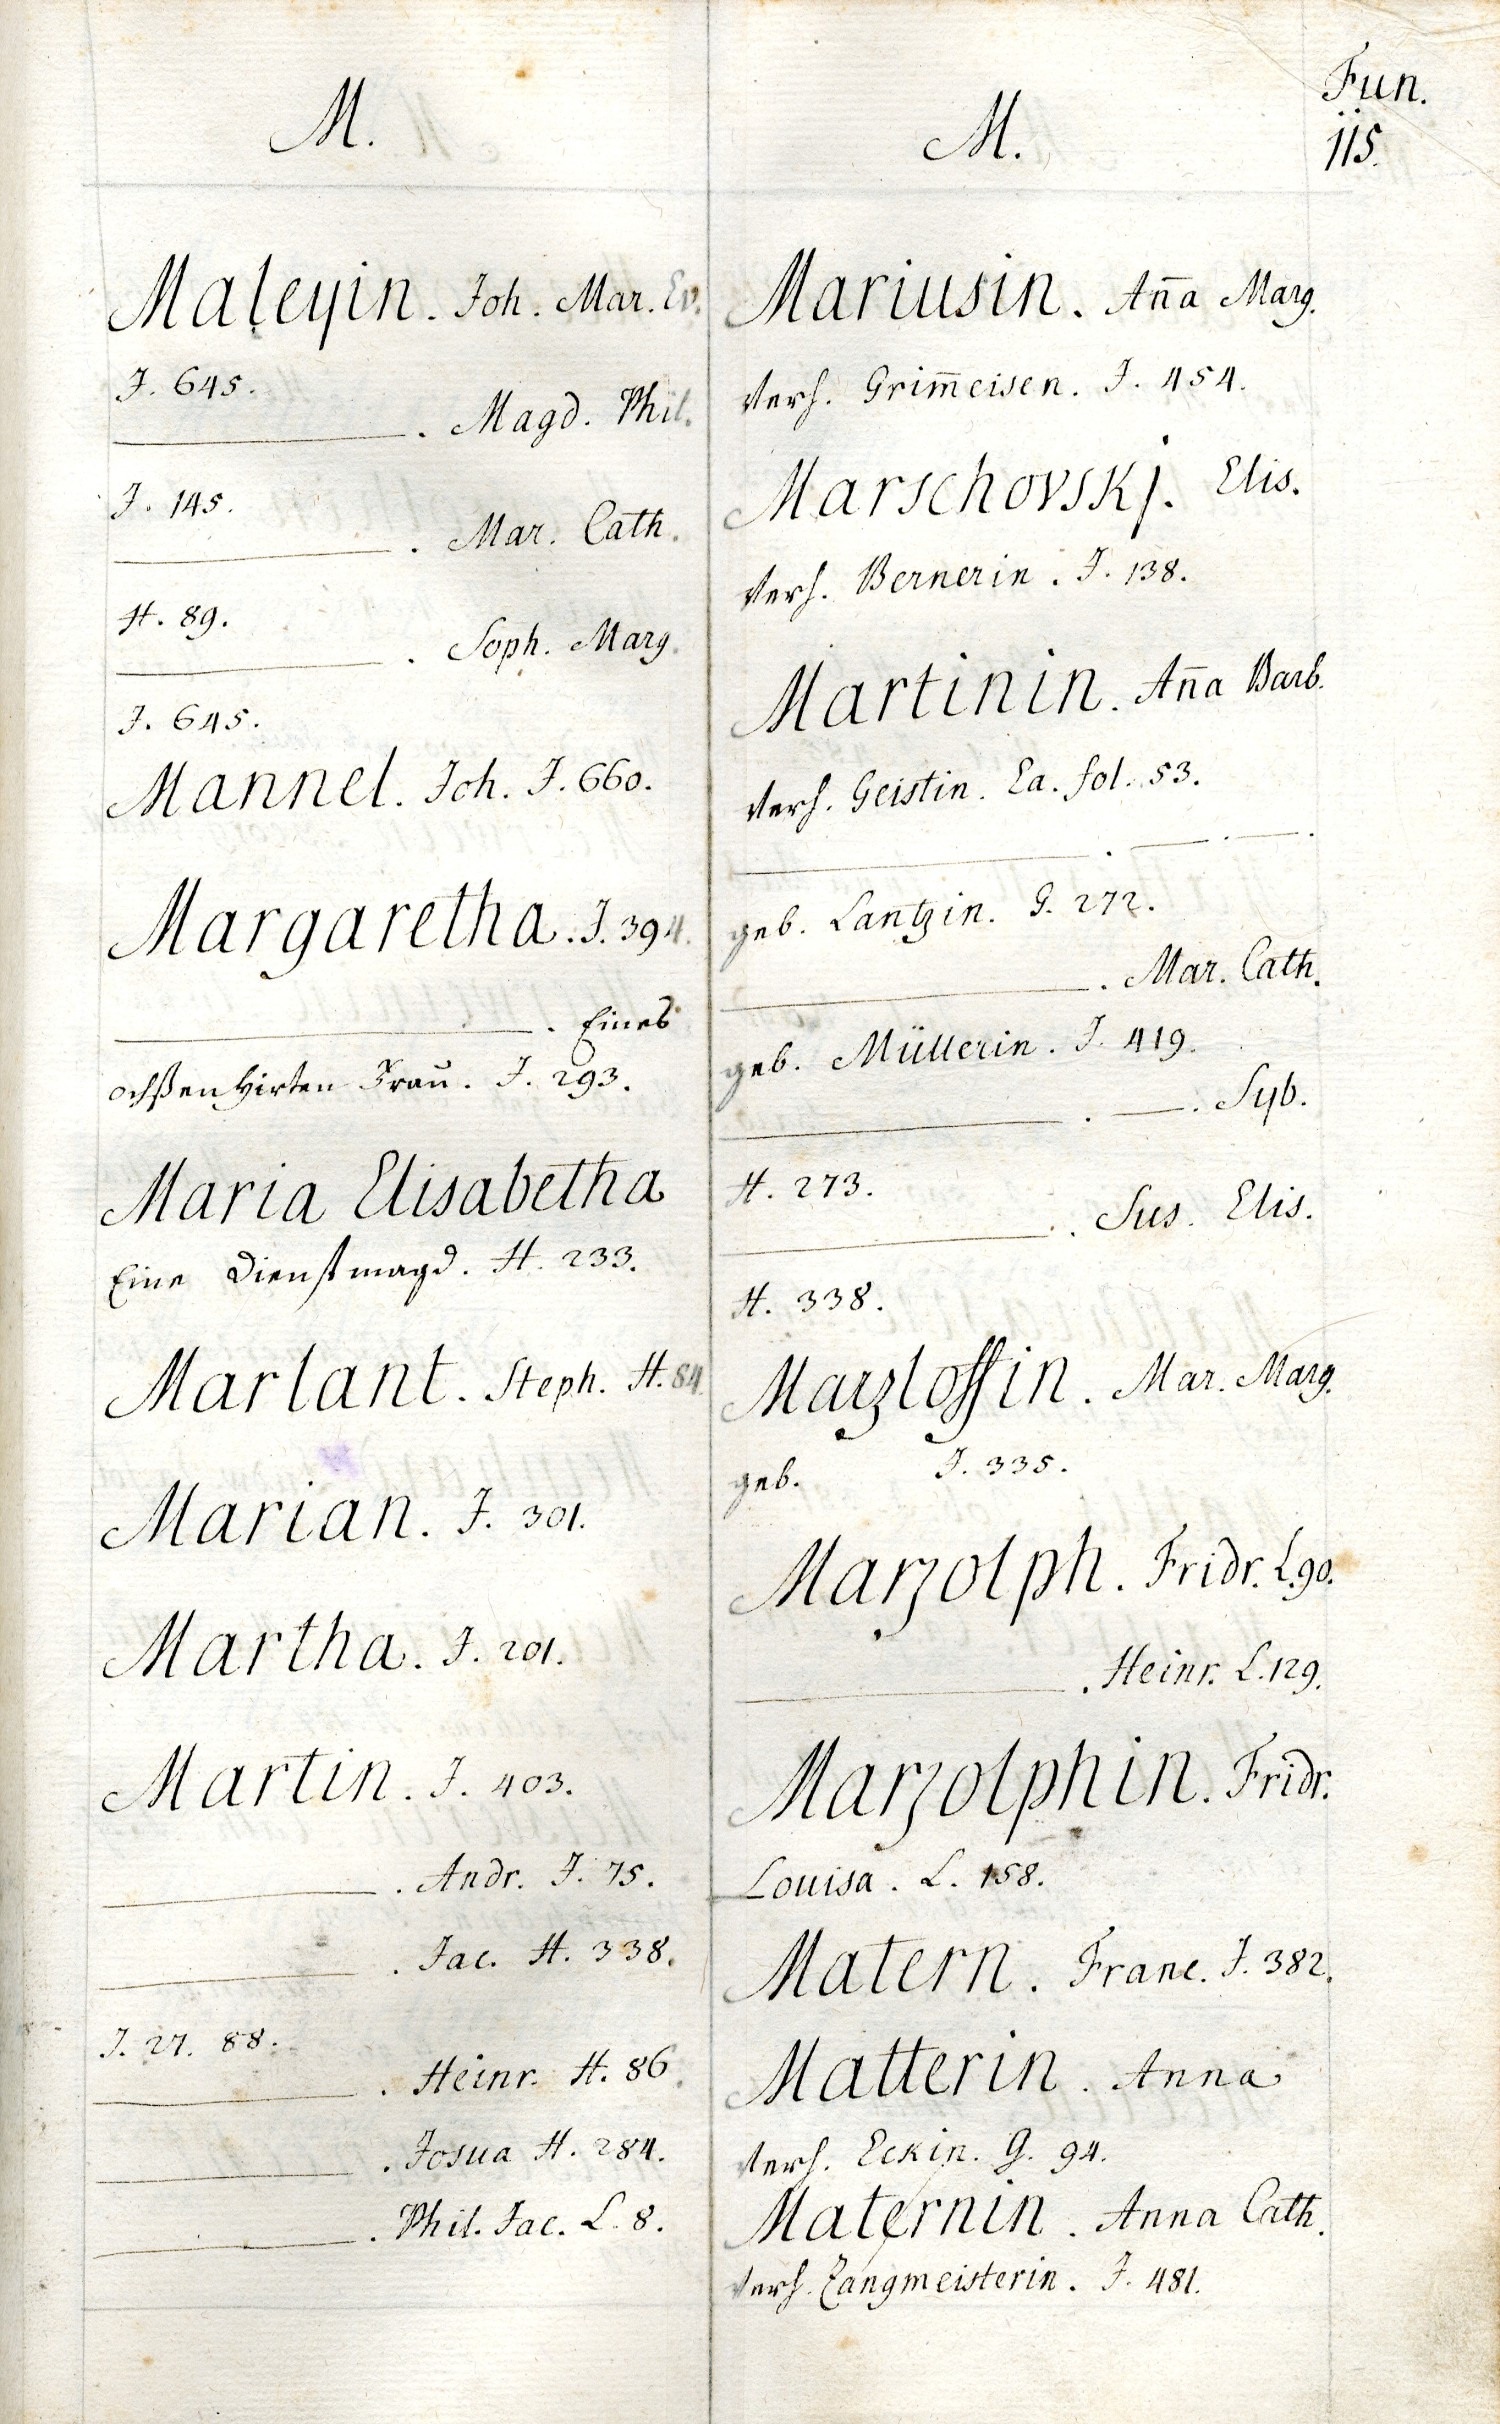 M.
Maleyin. Joh. Mar. Ev.
J. 645.
. Magd. Phil.
J. 145.
. Mar. Cath.
H. 89.
. Soph. Marg.
J. 645.
Mannel. Joh. J. 660.
Margaretha. J. 394.
. Eines
ochßen Hirten Frau. J. 293.
Maria Elisabetha
Eine Dienstmagd. H. 233.
Marlant. Steph. H. 84
Marian. J. 301.
Martha. J. 201.
Martin. J. 403.
. Andr. J. 75.
. Jac. H. 338.
J. 27. 88.
. Heinr. H. 86.
. Josua H. 284.
. Phil. Jac. L. 8.
M.
Fun.
115.
Mariusin. Aña Marg.
verh. Grim̄eisen. J. 454.
Marschovskj. Elis.
verh. Bernerin. J. 138.
Martinin. Aña Barb.
verh. Geistin. Ea. fol. 53.
. — .
geb. Lantzin. G. 272.
. Mar. Cath.
geb. Müllerin. J. 419.
. — . Syb.
H. 273.
. Sus. Elis.
H. 338.
Marzloffin. Mar. Marg.
geb. J. 335.
Marzolph. Fridr. L. 90.
. Heinr. L. 129.
Marzolphin. Fridr.
Louisa. L. 158.
Matern. Franc. J. 382.
Matterin. Anna
verh. Eckin. G. 94.
Maternin. Anna Cath.
verh. Zangmeisterin. J. 481.